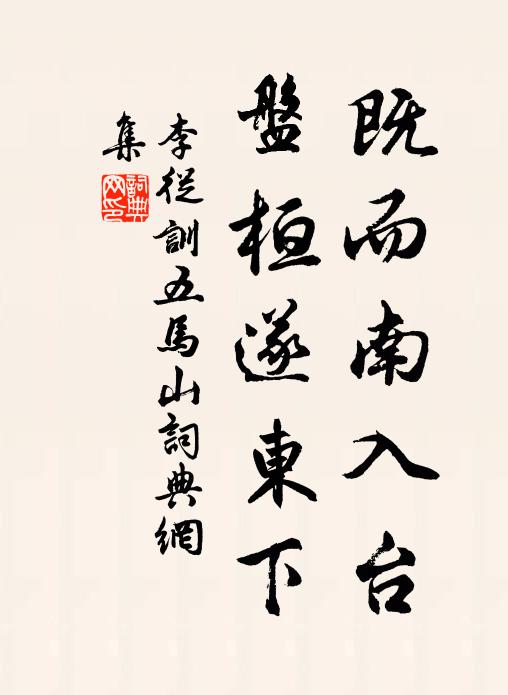 既而南入台
盤桓遂東下
李從訓五馬山詞典網
集
詞典
网印